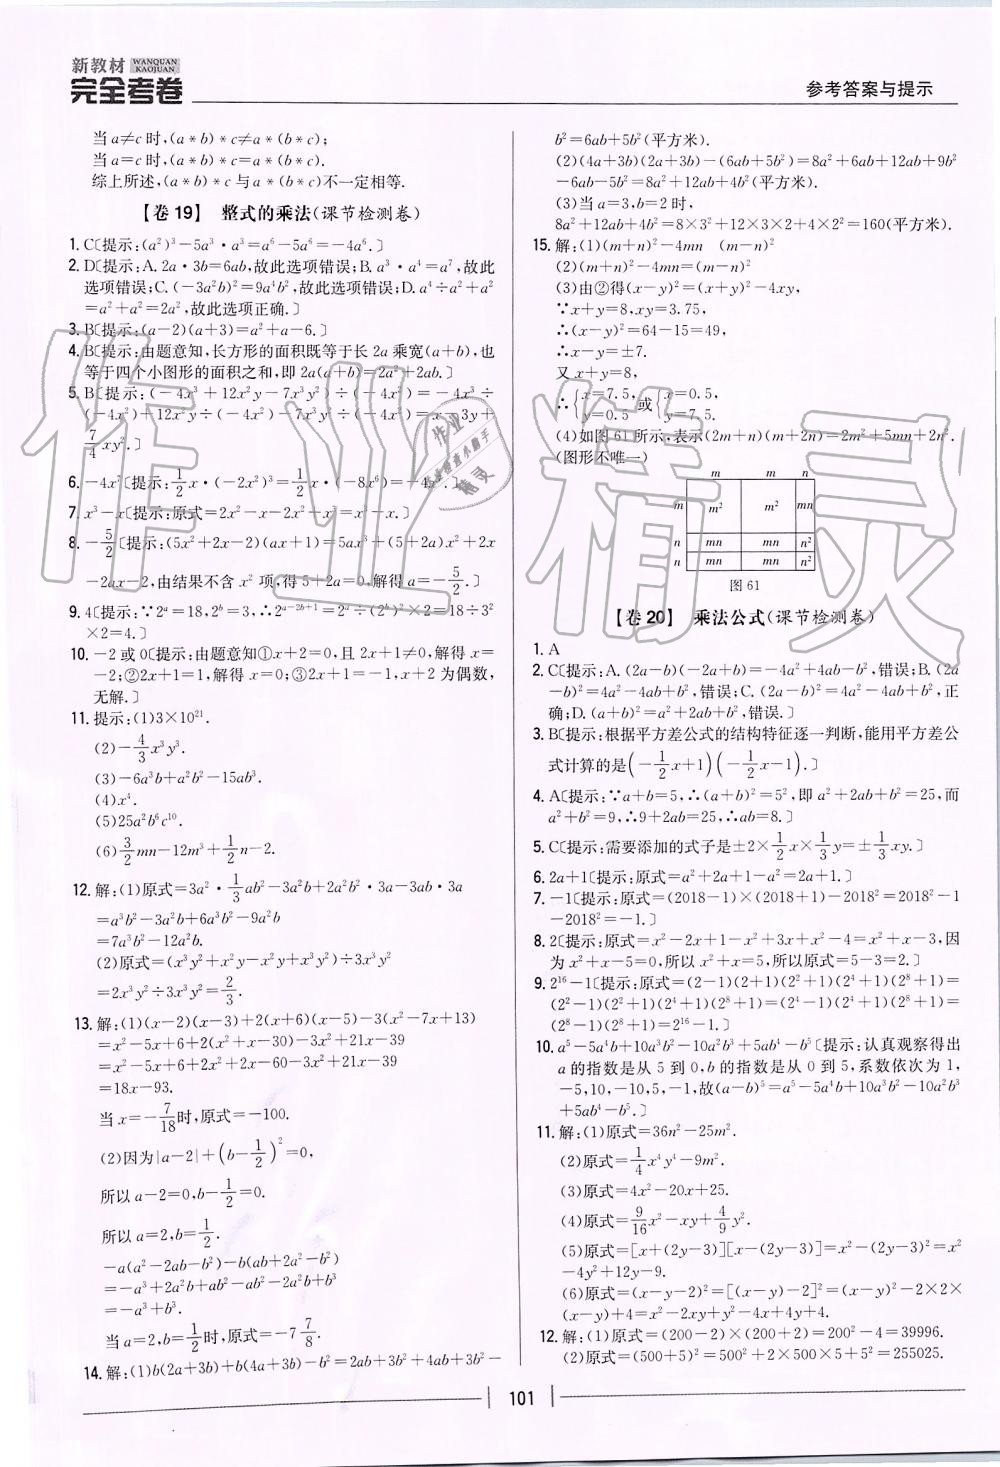 新教材 WANQUAN KAOJUAN
完全考卷
参考答案与提示
当a≠c时,(a*b)*c≠a*(b*c);
当a=c时,(a*b)*c=a*(b*c).
综上所述,(a*b)*c与a*(b*c)不一定相等.
【卷19】 整式的乘法(课节检测卷)
1. C〔提示:(a²)³-5a³·a³=a⁶-5a⁶=-4a⁶.〕
2. D〔提示:A. 2a·3b=6ab,故此选项错误;B. a³·a⁴=a⁷,故此
选项错误;C. (-3a²b)²=9a⁴b²,故此选项错误;D. a⁴÷a²+a²
=a²+a²=2a²,故此选项正确.〕
3. B〔提示:(a-2)(a+3)=a²+a-6.〕
4. B〔提示:由题意知,长方形的面积既等于长2a乘宽(a+b),也
等于四个小图形的面积之和,即2a(a+b)=2a²+2ab.〕
5. B〔提示:(-4x³+12x²y-7x³y²)÷(-4x²)=-4x³÷
(-4x²)+12x²y÷(-4x²)-7x³y²÷(-4x²)=x-3y+
7/4xy².〕
6. -4x⁷〔提示:1/2x·(-2x²)³=1/2x·(-8x⁶)=-4x⁷.〕
7. x³-x〔提示:原式=2x²-x-2x²+x³=x³-x.〕
8. -5/2〔提示:(5x²+2x-2)(ax+1)=5ax³+(5+2a)x²+2x
-2ax-2,由结果不含x²项,得5+2a=0,解得a=-5/2.〕
9. 4〔提示:∵2ᵃ=18,2ᵇ=3,∴2ᵃ⁻²ᵇ⁺¹=2ᵃ÷(2ᵇ)²×2=18÷3²
×2=4.〕
10. -2或0〔提示:由题意知①x+2=0,且2x+1≠0,解得x=
-2;②2x+1=1,解得x=0;③2x+1=-1,x+2为偶数,
无解.〕
11. 提示:(1)3×10²¹.
(2)-4/3x³y³.
(3)-6a³b+a²b²-15ab³.
(4)x⁴.
(5)25a²b⁶c¹⁰.
(6)3/2mn-12m³+1/2n-2.
12. 解:(1)原式=3a²·1/3ab²-3a²b+2a²b²·3a-3ab·3a
=a³b²-3a²b+6a³b²-9a²b
=7a³b²-12a²b.
(2)原式=(x³y²+x²y-x²y+x³y²)÷3x³y²
=2x³y²÷3x³y²=2/3.
13. 解:(1)(x-2)(x-3)+2(x+6)(x-5)-3(x²-7x+13)
=x²-5x+6+2(x²+x-30)-3x²+21x-39
=x²-5x+6+2x²+2x-60-3x²+21x-39
=18x-93.
当x=-7/18时,原式=-100.
(2)因为|a-2|+(b-1/2)²=0,
所以a-2=0,b-1/2=0.
所以a=2,b=1/2.
-a(a²-2ab-b²)-b(ab+2a²-b²)
=-a³+2a²b+ab²-ab²-2a²b+b³
=-a³+b³.
当a=2,b=1/2时,原式=-7 7/8.
14. 解:(1)b(2a+3b)+b(4a+3b)-b²=2ab+3b²+4ab+3b²-
b²=6ab+5b²(平方米).
(2)(4a+3b)(2a+3b)-(6ab+5b²)=8a²+6ab+12ab+9b²
-6ab-5b²=8a²+12ab+4b²(平方米).
(3)当a=3,b=2时,
8a²+12ab+4b²=8×3²+12×3×2+4×2²=160(平方米).
15. 解:(1)(m+n)²-4mn (m-n)²
(2)(m+n)²-4mn=(m-n)²
(3)由②得(x-y)²=(x+y)²-4xy,
∵x+y=8,xy=3.75,
∴(x-y)²=64-15=49,
∴x-y=±7.
又x+y=8,
∴{x=7.5, y=0.5 或{x=0.5, y=7.5.
(4)如图61所示,表示(2m+n)(m+2n)=2m²+5mn+2n².
(图形不唯一)
m m n
m m² m² mn
n mn mn n²
n mn mn n²
图61
【卷20】 乘法公式(课节检测卷)
1. A
2. C〔提示:A. (2a-b)(-2a+b)=-4a²+4ab-b²,错误;B. (2a
-b)²=4a²-4ab+b²,错误;C. (2a-b)²=4a²-4ab+b²,正
确;D. (a+b)²=a²+2ab+b²,错误.〕
3. B〔提示:根据平方差公式的结构特征逐一判断,能用平方差公
式计算的是(-1/2x+1)(-1/2x-1).〕
4. A〔提示:∵a+b=5,∴(a+b)²=5²,即a²+2ab+b²=25,而
a²+b²=9,∴9+2ab=25,∴ab=8.〕
5. C〔提示:需要添加的式子是±2×1/2x×1/3y=±1/3xy.〕
6. 2a+1〔提示:原式=a²+2a+1-a²=2a+1.〕
7. -1〔提示:原式=(2018-1)×(2018+1)-2018²=2018²-1
-2018²=-1.〕
8. 2〔提示:原式=x²-2x+1-x²+3x+x²-4=x²+x-3,因
为x²+x-5=0,所以x²+x=5,所以原式=5-3=2.〕
9. 2¹⁶-1〔提示:原式=(2-1)(2+1)(2²+1)(2⁴+1)(2⁸+1)=
(2²-1)(2²+1)(2⁴+1)(2⁸+1)=(2⁴-1)(2⁴+1)(2⁸+1)=
(2⁸-1)(2⁸+1)=2¹⁶-1.〕
10. a⁵-5a⁴b+10a³b²-10a²b³+5ab⁴-b⁵〔提示:认真观察得出
a的指数是从5到0,b的指数是从0到5,系数依次为1,
-5,10,-10,5,-1,故(a-b)⁵=a⁵-5a⁴b+10a³b²-10a²b³
+5ab⁴-b⁵.〕
11. 解:(1)原式=36n²-25m².
(2)原式=1/4x⁴y⁴-9m².
(3)原式=4x²-20x+25.
(4)原式=9/16x²-xy+4/9y².
(5)原式=[x+(2y-3)][x-(2y-3)]=x²-(2y-3)²=x²
-4y²+12y-9.
(6)原式=(x-y-2)²=[(x-y)-2]²=(x-y)²-2×2×
(x-y)+4=x²-2xy+y²-4x+4y+4.
12. 解:(1)原式=(200-2)×(200+2)=200²-4=39996.
(2)原式=(500+5)²=500²+2×500×5+5²=255025.
101
作业精灵